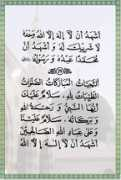 أَشْهَدُ أَنْ لَا إِلَهَ إِلَّا اللهُ وَحْدَهُ
لَا شَرِيكَ لَهُ وَ أَشْهَدُ أَنَّ
مُحَمَّدًا عَبْدُهُ وَ رَسُولُهُ
التَّحِيَّاتُ الْمُبَارَكَاتُ الصَّلَوَاتُ
الطَّيِّبَاتُ لِلَّهِ ، سَلَامٌ عَلَيْكَ
أَيُّهَا النَّبِيُّ وَ رَحْمَةُ اللهِ
وَ بَرَكَاتُهُ ، سَلَامٌ عَلَيْنَا
وَ عَلَى عِبَادِ اللهِ الصَّالِحِينَ
أَشْهَدُ أَنْ لَا إِلَهَ إِلَّا اللهُ